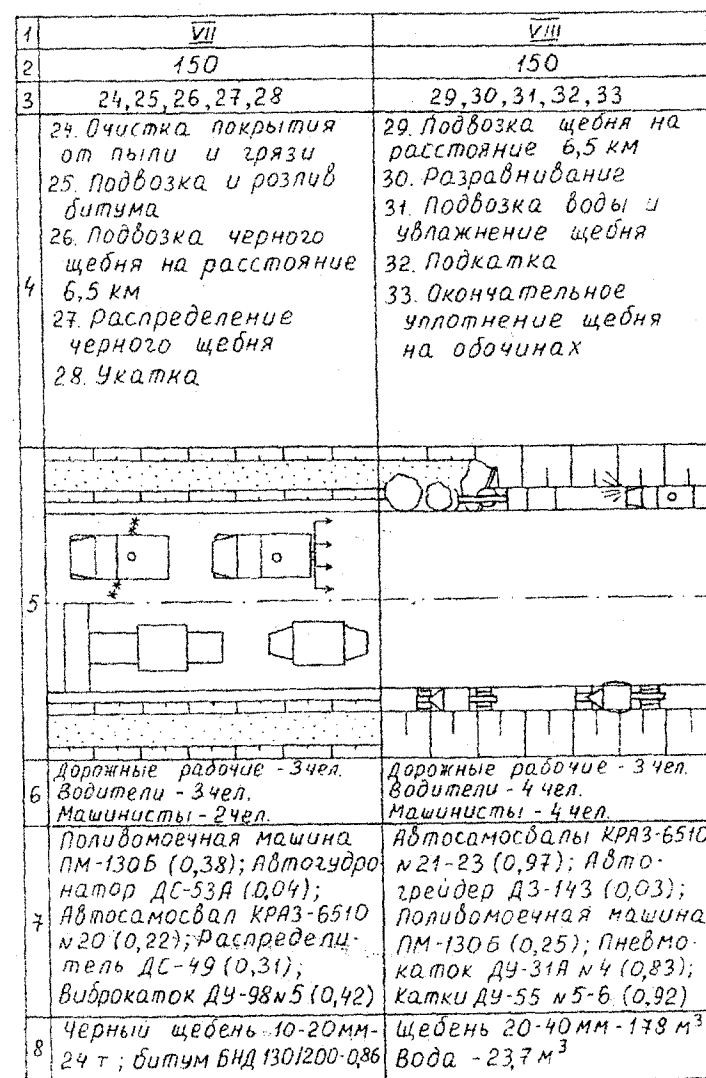 1 VII VIII
2 150 150
3 24,25,26,27,28 29,30,31,32,33
4
24. Очистка покрытия
от пыли и грязи
25. Подвозка и розлив
битума
26. Подвозка черного
щебня на расстояние
6,5 км
27. Распределение
черного щебня
28. Укатка
29. Подвозка щебня на
расстояние 6,5 км
30. Разравнивание
31. Подвозка воды и
увлажнение щебня
32. Подкатка
33. Окончательное
уплотнение щебня
на обочинах
5
6
Дорожные рабочие - 3 чел.
Водители - 3 чел.
Машинисты - 2 чел.
Дорожные рабочие - 3 чел.
Водители - 4 чел.
Машинисты - 4 чел.
7
Поливомоечная машина
ПМ-130Б (0,38); Автогудро
натор ДС-53А (0,04);
Автосамосвал КРАЗ-6510
№20 (0,22); Распредели-
тель ДС-49 (0,31);
Виброкаток ДУ-98 №5 (0,42)
Автосамосвалы КРАЗ-6510
№21-23 (0,97); Авто-
грейдер ДЗ-143 (0,03);
Поливомоечная машина
ПМ-130Б (0,25); Пневмо-
каток ДУ-31А №4 (0,83);
Катки ДУ-55 №5-6 (0,92)
8
Черный щебень 10-20мм-
24 т; битум БНД 130/200-0,86
Щебень 20-40мм-178 м³
Вода - 23,7 м³